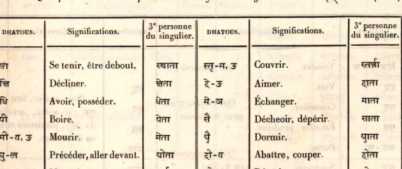 DHATOUS. Significations. 3ᵉ personne du singulier. DHATOUS. Significations. 3ᵉ personne du singulier.
Se tenir, être debout. स्थाता स्तृ-ग, उ Couvrir. स्तर्ता
Décliner. क्षेता दे-ङ Aimer. दाता
धि Avoir, posséder. धेता मे-ञ Échanger. माता
पी Boire. पेता सै Déchoir, dépérir. साता
मी-ग, उ Mourir. मेता Dormir.
यु-ल Précéder, aller devant. योता दो-य Abattre, couper.